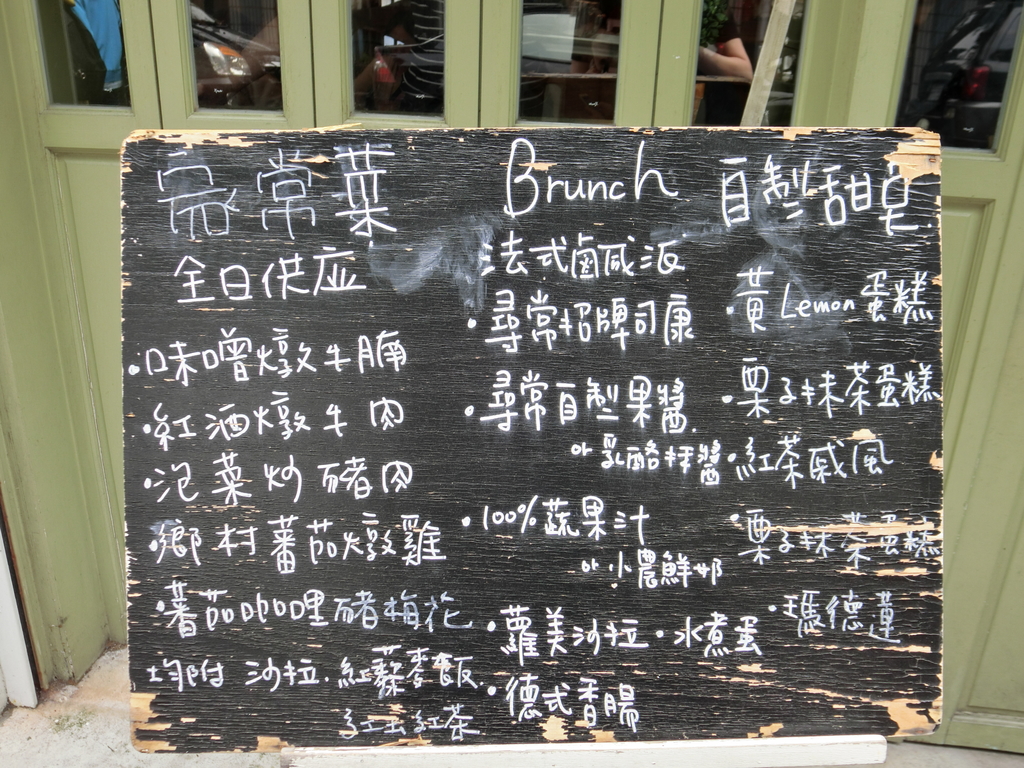 家常菜
全日供應
·味噌燉牛腩
·紅酒燉牛肉
·泡菜炒豬肉
·鄉村蕃茄燉雞
·蕃茄咖哩豬梅花
均附 沙拉.紅藜麥飯.
紅玉紅茶
Brunch
法式鹹派
·尋常招牌司康
·尋常自製果醬.
or 乳酪抹醬
·100%蔬果汁
or 小農鮮奶
·蘿美沙拉·水煮蛋
·德式香腸
自製甜点
·黃Lemon蛋糕
·栗子抹茶蛋糕
·紅茶戚風
·栗子抹茶蛋糕
·瑪德蓮